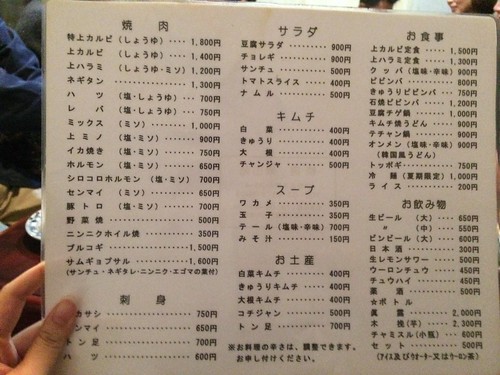 焼肉
特上カルビ（しょうゆ）････ 1,800円
上カルビ（しょうゆ）････ 1,400円
上ハラミ（しょうゆ・ミソ） 1,200円
ネギタン ････････ 1,300円
ハツ（塩・しょうゆ）････ 700円
レバ（塩・しょうゆ）････ 750円
ミックス（ミソ）･･････ 1,000円
上ミノ（塩・ミソ）････ 900円
イカ焼き（塩・ミソ）････ 750円
ホルモン（塩・ミソ）････ 650円
シロコロホルモン（塩・ミソ） 700円
センマイ（ミソ）････ 650円
豚トロ（塩・ミソ）････ 700円
野菜焼 ････････ 500円
ニンニクホイル焼 ････ 350円
プルコギ ････････ 1,500円
サムギョプサル ････ 1,600円
(サンチュ・ネギタレ・ニンニク・エゴマの葉付)
刺身
カサシ ････････ 750円
ンマイ ････････ 650円
トン足 ････････ 700円
ハツ ････････ 600円
サラダ
豆腐サラダ ････････ 900円
チョレギ ････････ 900円
サンチュ ････････ 500円
トマトスライス ････ 400円
ナムル ････････ 500円
キムチ
白菜 ････････ 400円
きゅうり ････････ 400円
大根 ････････ 400円
チャンジャ ････････ 500円
スープ
ワカメ ････････ 350円
玉子 ････････ 350円
テール（塩味・辛味） 700円
みそ汁 ････････ 150円
お土産
白菜キムチ ････････ 400円
きゅうりキムチ ････ 400円
大根キムチ ････････ 400円
コチジャン ････････ 500円
トン足 ････････ 500円
※お料理の辛さは、調整できます。
お申し付けください。
お食事
上カルビ定食 ････ 1,500円
上ハラミ定食 ････ 1,300円
クッパ（塩味・辛味） 900円
ビビンバ ････････ 800円
きゅうりビビンバ ････ 750円
石焼ビビンバ ････ 1,200円
豆腐チゲ鍋 ････ 1,000円
キムチ焼うどん ････ 900円
テチャン鍋 ････ 900円
オンメン（塩味・辛味） 900円
（韓国風うどん）
トッポギ ････････ 750円
冷麺（夏期限定） 1,000円
ライス ････････ 200円
お飲み物
生ビール（大）････ 650円
〃（中）････ 550円
ビンビール（大）････ 600円
日本酒 ････････ 300円
生レモンサワー ････ 500円
ウーロンチュウ ････ 450円
チュウハイ ････ 450円
薬酒 ････････ 500円
☆ボトル
眞露 ････････ 2,000円
木挽（芋）････ 2,300円
チャミスル（小瓶）･･ 600円
セット ････････ 500円
(アイス及びウォーター又はウーロン茶)